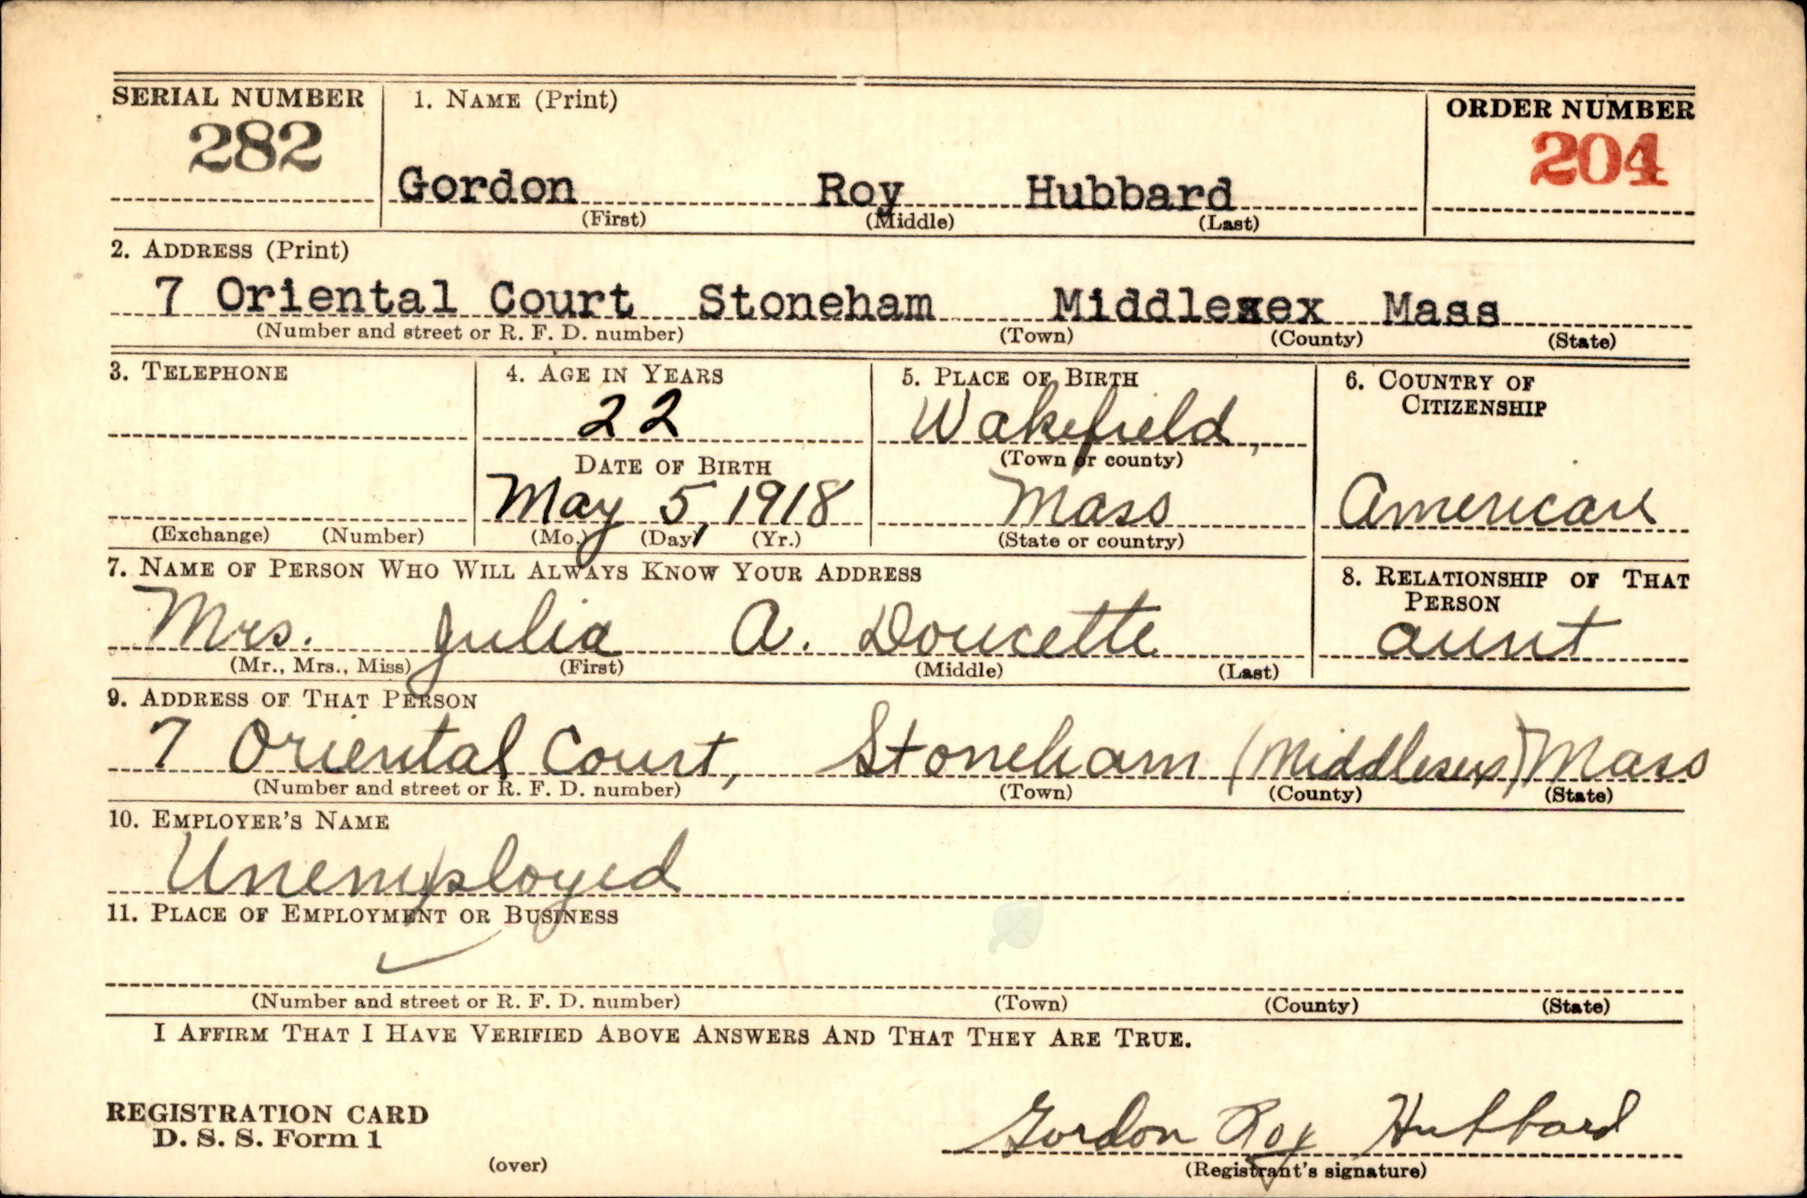 SERIAL NUMBER 1. NAME (Print) ORDER NUMBER
282 204
Gordon Roy Hubbard
(First) (Middle) (Last)
2. ADDRESS (Print)
7 Oriental Court Stoneham Middlesex Mass
(Number and street or R. F. D. number) (Town) (County) (State)
3. TELEPHONE 4. AGE IN YEARS 5. PLACE OF BIRTH 6. COUNTRY OF CITIZENSHIP
22 Wakefield,
DATE OF BIRTH (Town or county)
May 5, 1918 Mass American
(Exchange) (Number) (Mo.) (Day) (Yr.) (State or country)
7. NAME OF PERSON WHO WILL ALWAYS KNOW YOUR ADDRESS 8. RELATIONSHIP OF THAT PERSON
Mrs. Julia A. Doucette aunt
(Mr., Mrs., Miss) (First) (Middle) (Last)
9. ADDRESS OF THAT PERSON
7 Oriental Court, Stoneham (Middlesex) Mass
(Number and street or R. F. D. number) (Town) (County) (State)
10. EMPLOYER'S NAME
Unemployed
11. PLACE OF EMPLOYMENT OR BUSINESS
(Number and street or R. F. D. number) (Town) (County) (State)
I AFFIRM THAT I HAVE VERIFIED ABOVE ANSWERS AND THAT THEY ARE TRUE.
REGISTRATION CARD
D. S. S. Form 1 Gordon Roy Hubbard
(over) (Registrant's signature)